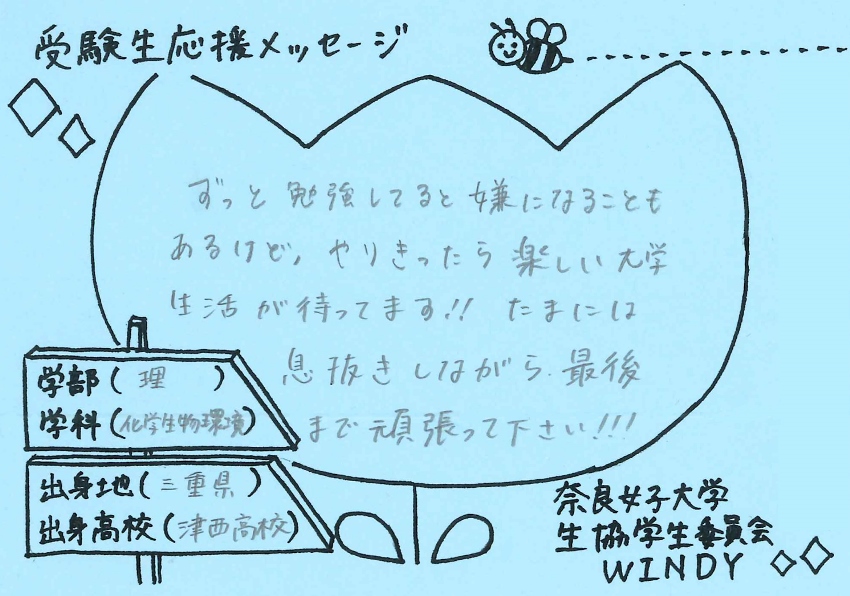 受験生応援メッセージ
ずっと勉強してると嫌になることも
あるけど、やりきったら楽しい大学
生活が待ってます!! たまには
息抜きしながら、最後
まで頑張って下さい!!!
学部(理)
学科(化学生物環境)
出身地(三重県)
出身高校(津西高校)
奈良女子大学
生協学生委員会
WINDY